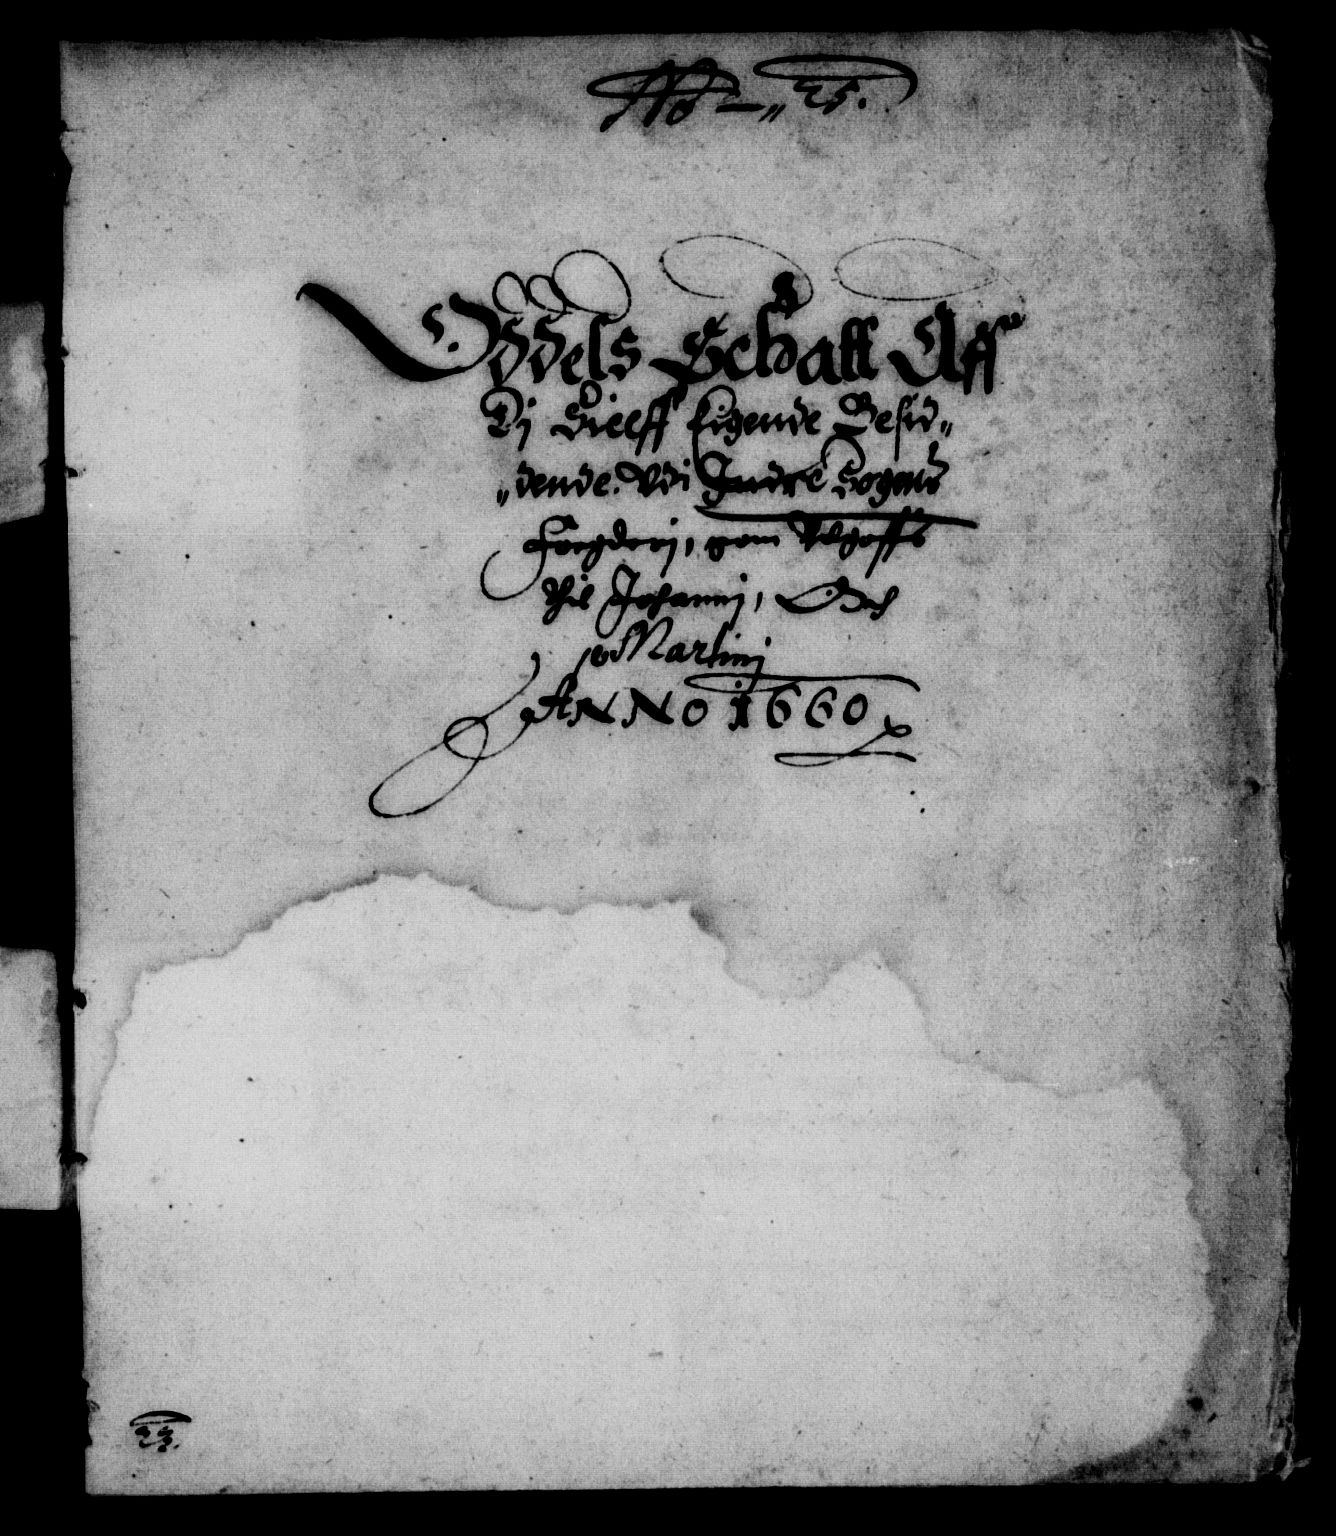 No — 25.
Oddels Schatt Aff
Dj Sielff Eigende Besid„
„dende. Vdi Indre Sogens
Fougderij, som Udgoffs
thil Johannj, Och
Martinj
ANNO 1660